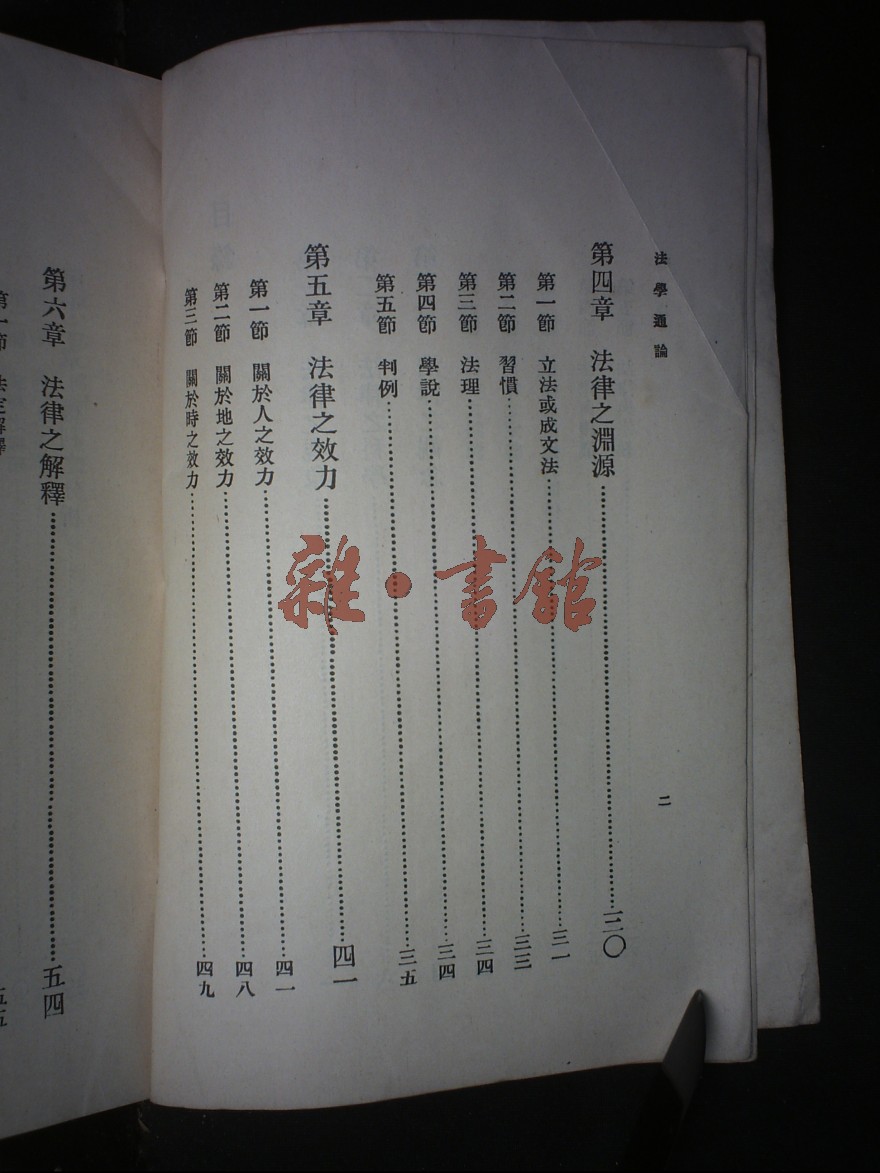 法學通論
二
第四章 法律之淵源……三〇
第一節 立法或成文法……三一
第二節 習慣……三三
第三節 法理……三四
第四節 學說……三四
第五節 判例……三五
第五章 法律之效力……四一
第一節 關於人之效力……四一
第二節 關於地之效力……四八
第三節 關於時之效力……四九
第六章 法律之解釋……五四
第一節 法定解釋……五五
雜·書館